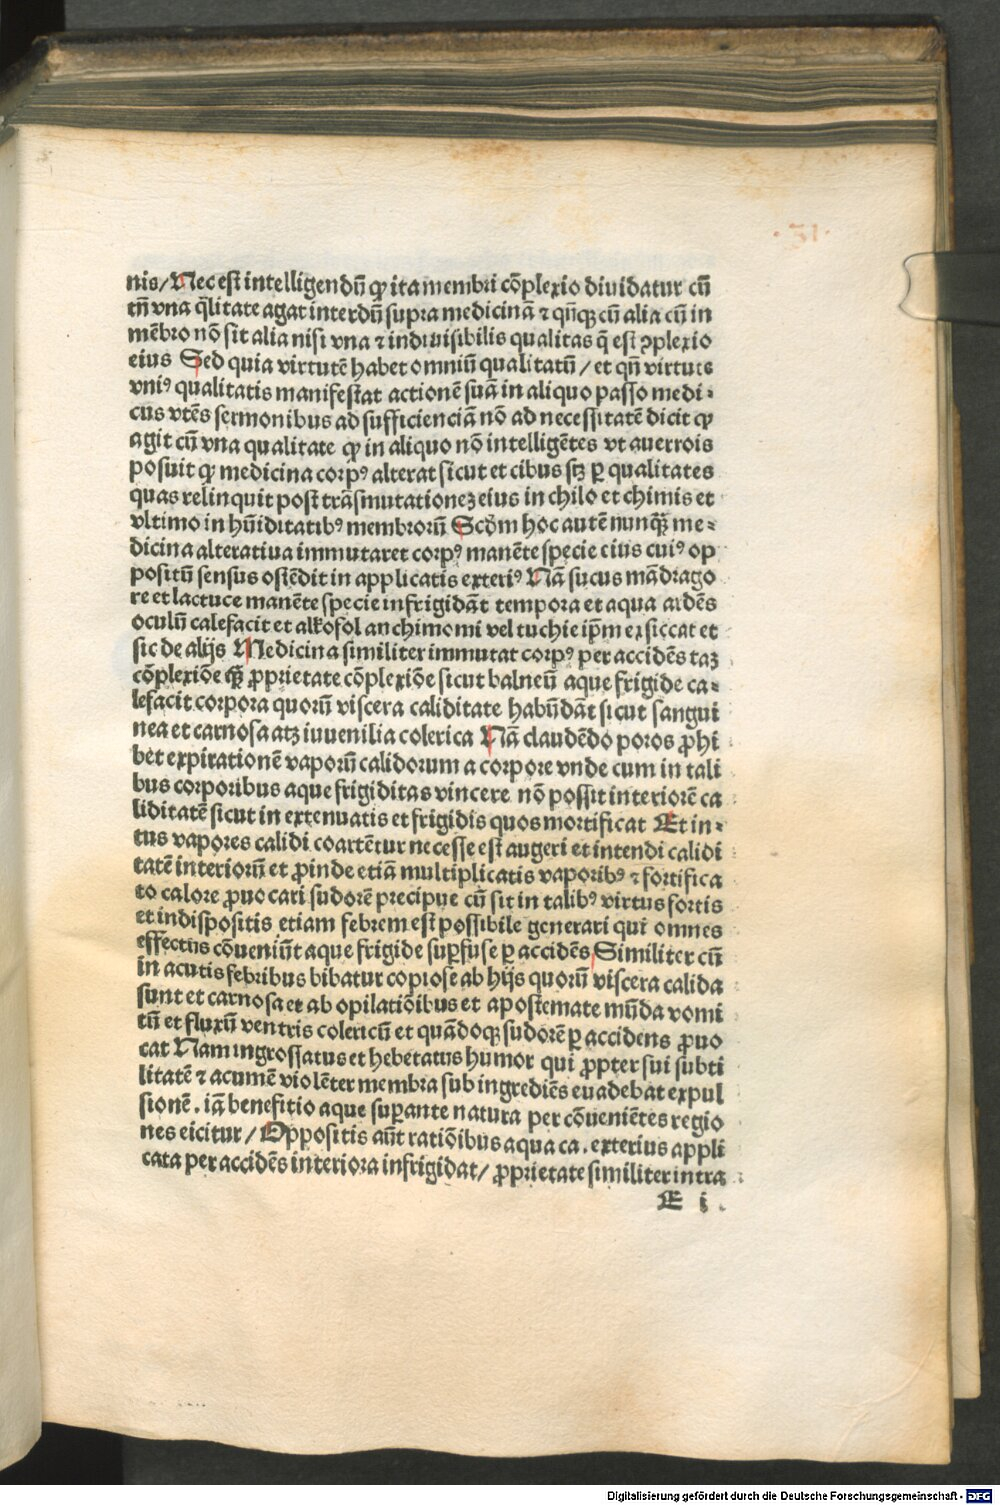 · 31 ·
nis/ Nec est intelligendū ꝙ ita membri cōplexio diuidatur cū
tñ vna q̄litate agat interdū supra medicinā ⁊ qñqꝫ cū alia cū in
mēbro nō sit alia nisi vna ⁊ indiuisibilis qualitas q̄ est ↄplexio
eius Sed quia virtutē habet omniū qualitatū / et qñ virtute
vniꝰ qualitatis manifestat actionē suā in aliquo passo medi-
cus vtēs sermonibus ad sufficienciā nō ad necessitatē dicit ꝙ
agit cū vna qualitate ꝙ in aliquo nō intelligētes vt auerrois
posuit ꝙ medicina corpꝰ alterat sicut et cibus stꝫ ꝑ qualitates
quas relinquit post trāsmutationeꝫ eius in chilo et chimis et
vltimo in hūiditatibꝰ membrorū Scdm̄ hoc autē nunqꝫ me-
dicina alteratiua immutaret corpꝰ manēte specie eius cuiꝰ op
positū sensus ostēdit in applicatis exteriꝰ Nā sucus mādrago
re et lactuce manēte specie infrigidāt tempora et aqua ardēs
oculū calefacit et alkofol anchimomi vel tuchie ip̄m exsiccat et
sic de alijs Medicina similiter immutat corpꝰ per accidēs taꝫ
cōplexiōe qꝫ ꝓprietate cōplexiōe sicut balneū aque frigide ca-
lefacit corpora quorū viscera caliditate habūdāt sicut sangui
nea et carnosa atqꝫ iuuenilia colerica Nā claudēdo poros ꝓhi
bet expirationē vaporū calidorum a corpore vnde cum in tali
bus corporibus aque frigiditas vincere nō possit interiorē ca
liditatē sicut in extenuatis et frigidis quos mortificat Et in-
tus vapores calidi coartētur necesse est augeri et intendi calidi
tatē interiorū et ꝓinde etiā multiplicatis vaporibꝰ ⁊ fortifica
to calore ꝓuocari sudorē precipue cū sit in talibꝰ virtus fortis
et indispositis etiam febrem est possibile generari qui omnes
effectus cōueniūt aque frigide suꝑfuse ꝑ accidēs Similiter cū
in acutis febribus bibatur copiose ab hijs quorū viscera calida
sunt et carnosa et ab opilatiōibus et apostemate mūda vomi
tū et fluxū ventris colericū et quādoqꝫ sudorē ꝑ accidens ꝓuo
cat Nam ingrossatus et hebetatus humor qui ꝓpter sui subti
litatē ⁊ acumē violēter membra sub ingrediēs euadebat expul
sionē . iā benefitio aque suꝑante natura per cōueniētes regio
nes eicitur / Oppositis aūt ratiōibus aqua ca . exterius appli
cata per accidēs interiora infrigidat / ꝓprietate similiter intra
E i .
Digitalisierung gefördert durch die Deutsche Forschungsgemeinschaft - DFG